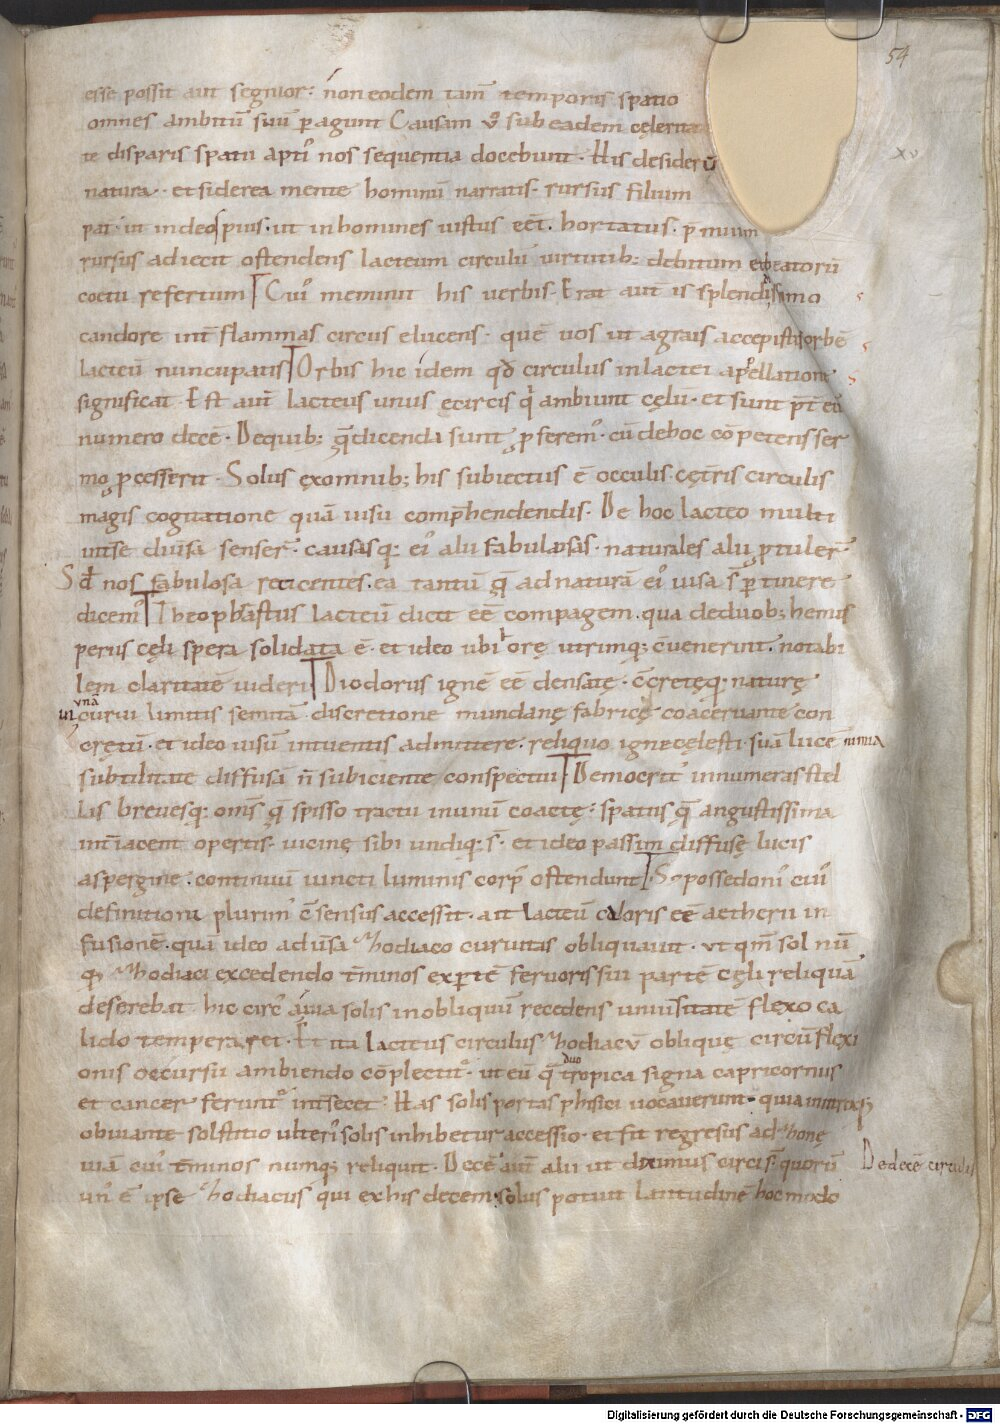 54
esse possit aut segnior: n̄on eodem tam̄ temporis spatio
omnes ambitū suū ꝑagunt Causam v̊ sub eadem cęlerita
te disparis spatii apti᷒ nos sequentia docebunt. His de siderū
xv
natura. et siderea mente hominū narratis. rursus filium
pat̄ ut in deos pius. ut in homines iustus eēt. hortatus. p̄mium
rursus adiecit ostendens lacteum circulū virtutib; debitum et beatorū
coetu refertum Cui᷒ meminit his verbis. Erat aut̄ is splendidissimo
candore int̄ flammas circus elucens. quē vos ut a graiis accepistis orbē
lacteū nuncupatis Orbis hic idem qđ circulus in lactei appellatione
significat. Est aut̄ lacteus unus e circis qͥ ambiunt cęlū. et sunt p̄t eū
numero decē. De quib; quę dicenda sunt ꝓferem᷒. cū de hoc cōpetens ser
mo ꝓcesserit. Solus ex omnib; his subiectus ē occulis cęt̄ris circulis
magis cogitatione quā uisu comp̄hendendis. De hoc lacteo multi
int̄ se diūsa senser̄. causasq; ei᷒ alii fabulosas. naturales alii ꝓtuler̄
Sđ nos fabulosa reticentes. ea tantū quę ad naturā ei᷒ uisa s̄ ꝑtinere
dicem᷒ Theophrastus lacteū dicit eē compagem. qua de duob; hemis
perus cęli spera solidata ē. et ideo ubi orę utrimq; c̄uenerunt. notabi
lem claritatē uideri Diodorus ignē eē densatę. c̄cretęq; naturę
in unā
curui limitis semitā. discretione mundanę fabricę coaceruante con
cretū. et ideo uisū intuentis admittere. reliquo igne cęlesti. suā lucē nimia
subtilitate diffusā n̄ subiciente conspectui Democrit᷒ innumeras stel
lis breuesq; om̄s quę spisso tractu in unū coactę: spatiis quę angustissima
int̄iacent opertis. uicinę sibi undiq; s̄. et ideo passim diffusę lucis
aspergine. continuū iuncti luminis corp᷒ ostendunt S; possedoni᷒ cui᷒
definitioni plurim᷒ c̄sensus accessit. ait lacteū caloris eē aetherii in
fusionē. quā ideo aduersa zodiaco curuitas obliquauit. ut qm̄ sol nū
qͣ zodiaci excedendo t̄minos expertē feruoris sui partē cęli reliquā
deserebat hic circ᷒ a uia solis in obliquū recedens uniūsitatē flexo ca
lido temperaret. Et ita lacteus circulus zodiacū oblique circūflexi
onis occursu ambiendo cōplectit᷑. ut eū quę duo tropica signa capricornus
et cancer ferunt᷑ int̄secet. Has solis portas phisici uocauerunt. quia in utraq;
obuiante solstitio ulteri᷒ solis inhibetur accessio. et fit regressus ad zonę
uiam cui᷒ t̄minos numq; reliquit. Decē aut̄ alii ut diximus circi s̄. quorū
De decē circulis
un᷒ ē ipse zodiacus qui ex his decem. solus potuit latitudinē hoc modo
Digitalisierung gefördert durch die Deutsche Forschungsgemeinschaft - DFG